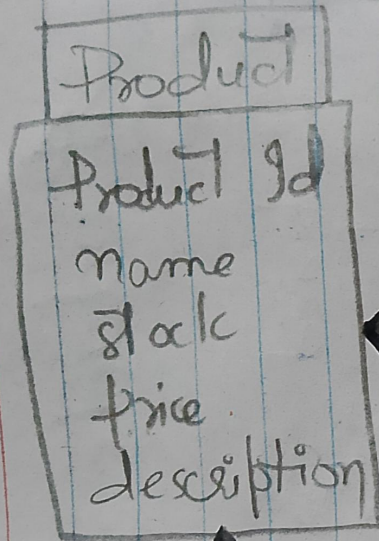 Product
Product Id
name
stock
price
description